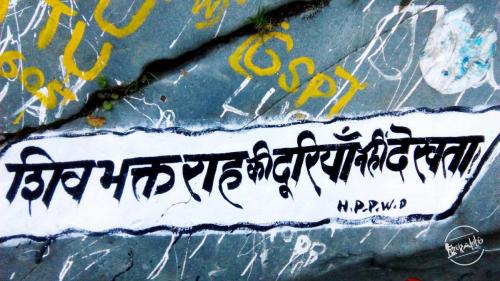 GSPT
शिव भक्त राह की दूरियाँ नहीं देखता
H.P.P.W.D